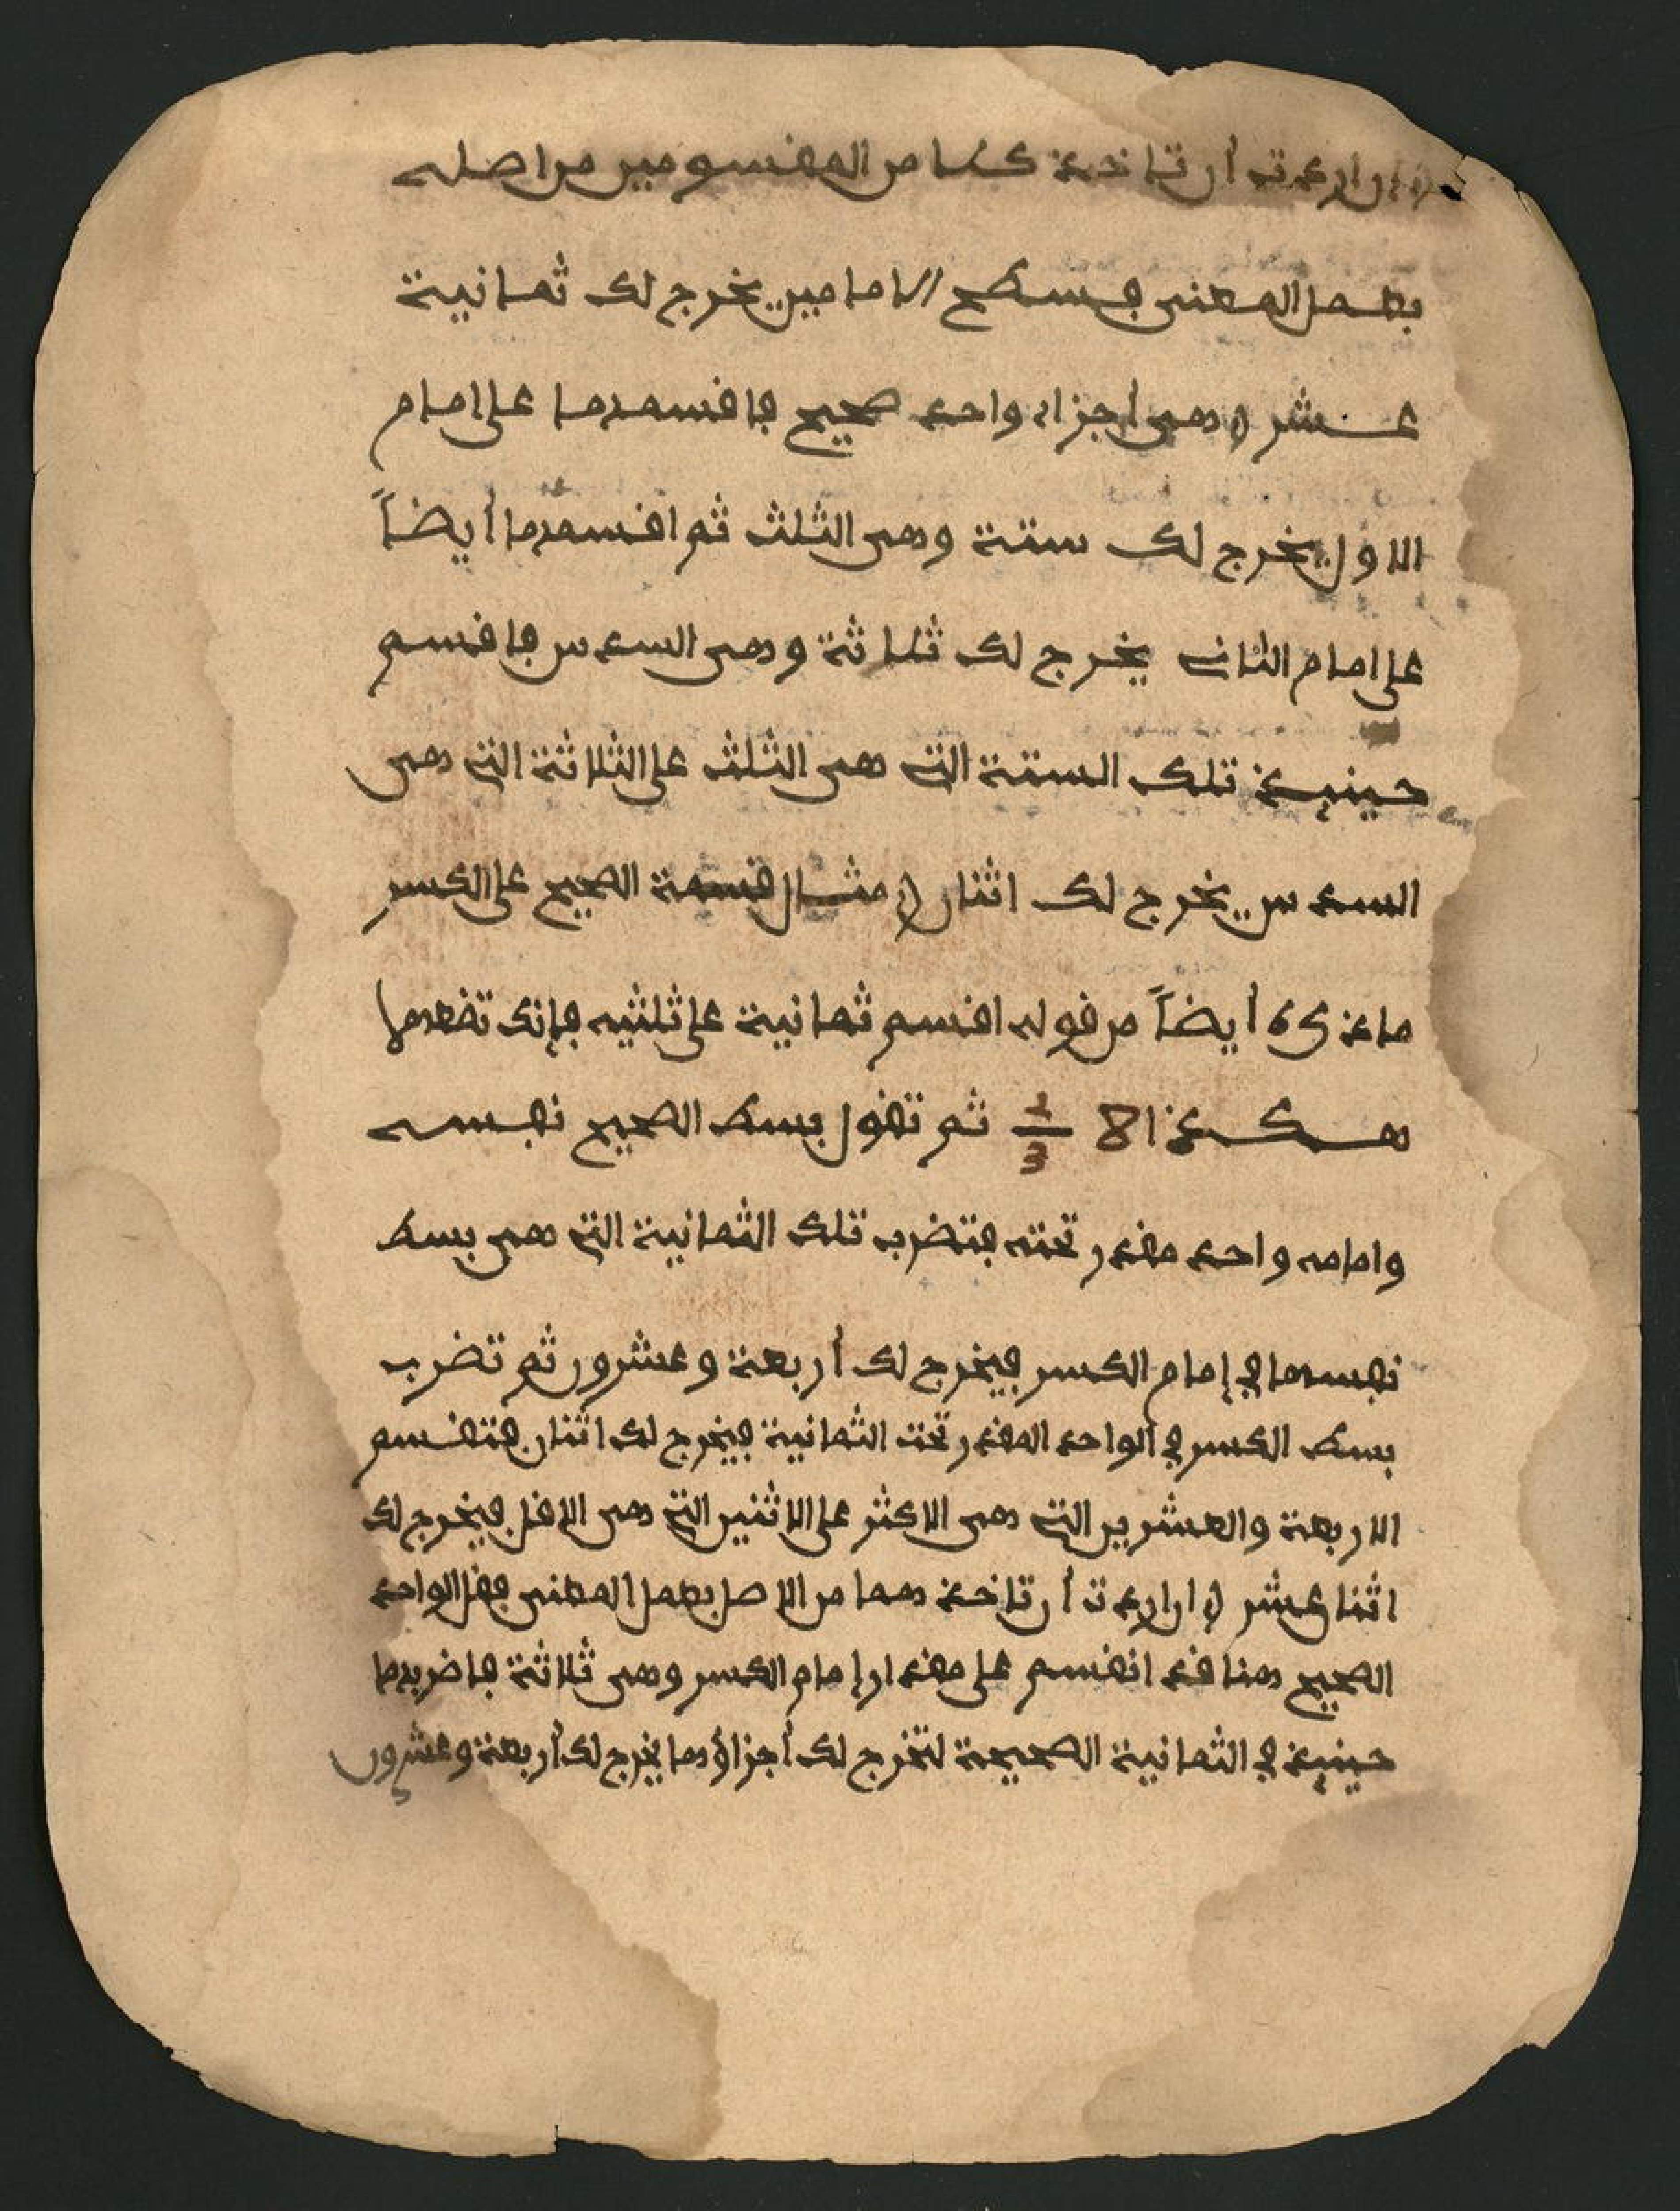 وان اردت أن تاخذ كلا من المقسومين من اصله
بعمل المعنى فسطح الامامين يخرج لك ثمانية
عشر وهى أجزاء واحد صحيح فاقسمها على امام
الاول يخرج لك ستة وهى الثلث ثم اقسمها أيضاً
على امام الثانى يخرج لك ثلاثة وهى السدس فاقسم
حينئذ تلك الستة التى هى الثلث على الثلاثة التى هى
السدس يخرج لك اثنان ومثال قسمة الصحيح على الكسر
ماذكره أيضاً من قوله اقسم ثمانية على ثلثيه فإنك تضعها
هكذا 8 2/3 ثم تقول بسط الصحيح نفسه
وامامه واحد مقدر تحته فتضرب تلك الثمانية التى هى بسط
نفسها في إمام الكسر فيخرج لك أربعة وعشرون ثم تضرب
بسط الكسر في الواحد المقدر تحت الثمانية فيخرج لك اثنان فتقسم
الاربعة والعشرين التى هى الاكثر على الاثنين التى هى الاقل فيخرج لك
اثنا عشر وان اردت أن تاخذ هما من الاصل بعمل المعنى فقل الواحد
الصحيح هنا قد انقسم على مقدار إمام الكسر وهى ثلاثة فاضربها
حينئذ في الثمانية الصحيحة لتخرج لك أجزاؤها يخرج لك أربعة وعشرون